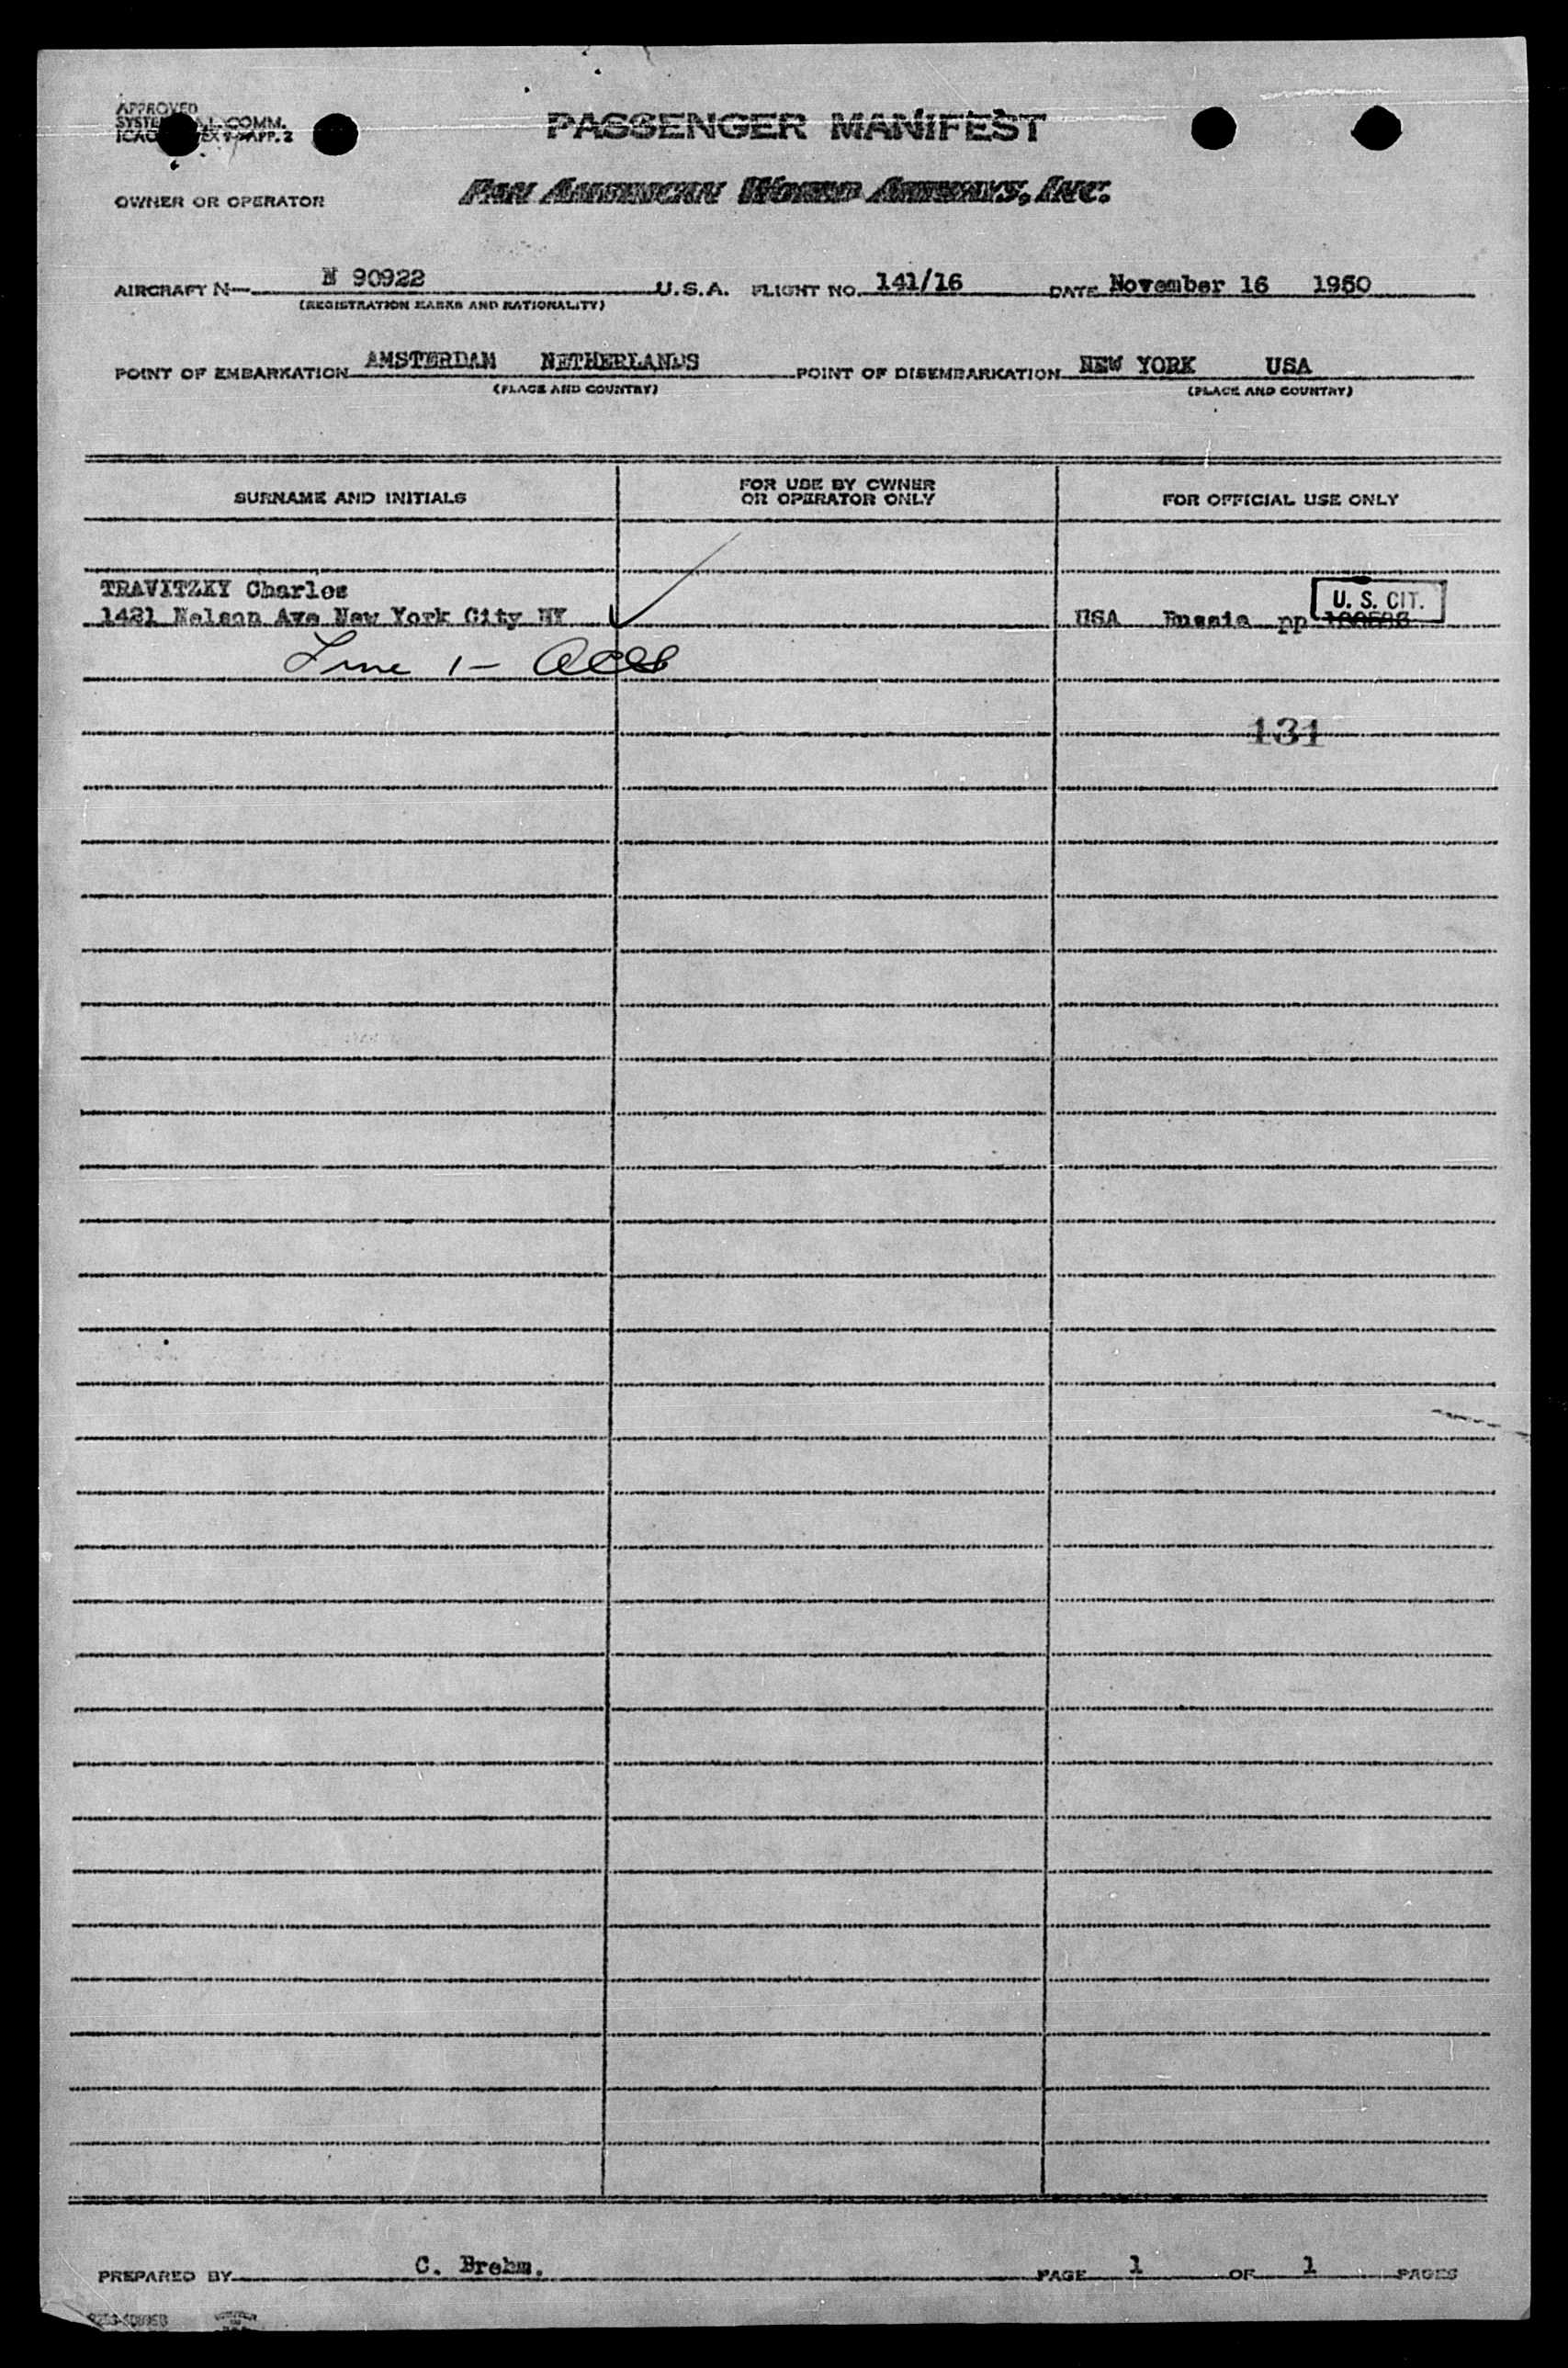 APPROVED
COMM.
PASSENGER MANIFEST
OWNER OR OPERATOR PAN AMERICAN WORLD AIRWAYS, INC.
AIRCRAFT N— N 90922 U.S.A. FLIGHT NO. 141/16 DATE November 16 1950
(REGISTRATION MARKS AND NATIONALITY)
POINT OF EMBARKATION AMSTERDAM NETHERLANDS POINT OF DISEMBARKATION NEW YORK USA
(PLACE AND COUNTRY) (PLACE AND COUNTRY)
SURNAME AND INITIALS FOR USE BY OWNER OR OPERATOR ONLY FOR OFFICIAL USE ONLY
TRAVITZKY Charles U. S. CIT.
1421 Nelson Ave New York City NY USA Russia pp
Line 1 –
131
PREPARED BY C. Brehm. PAGE 1 OF 1 PAGES